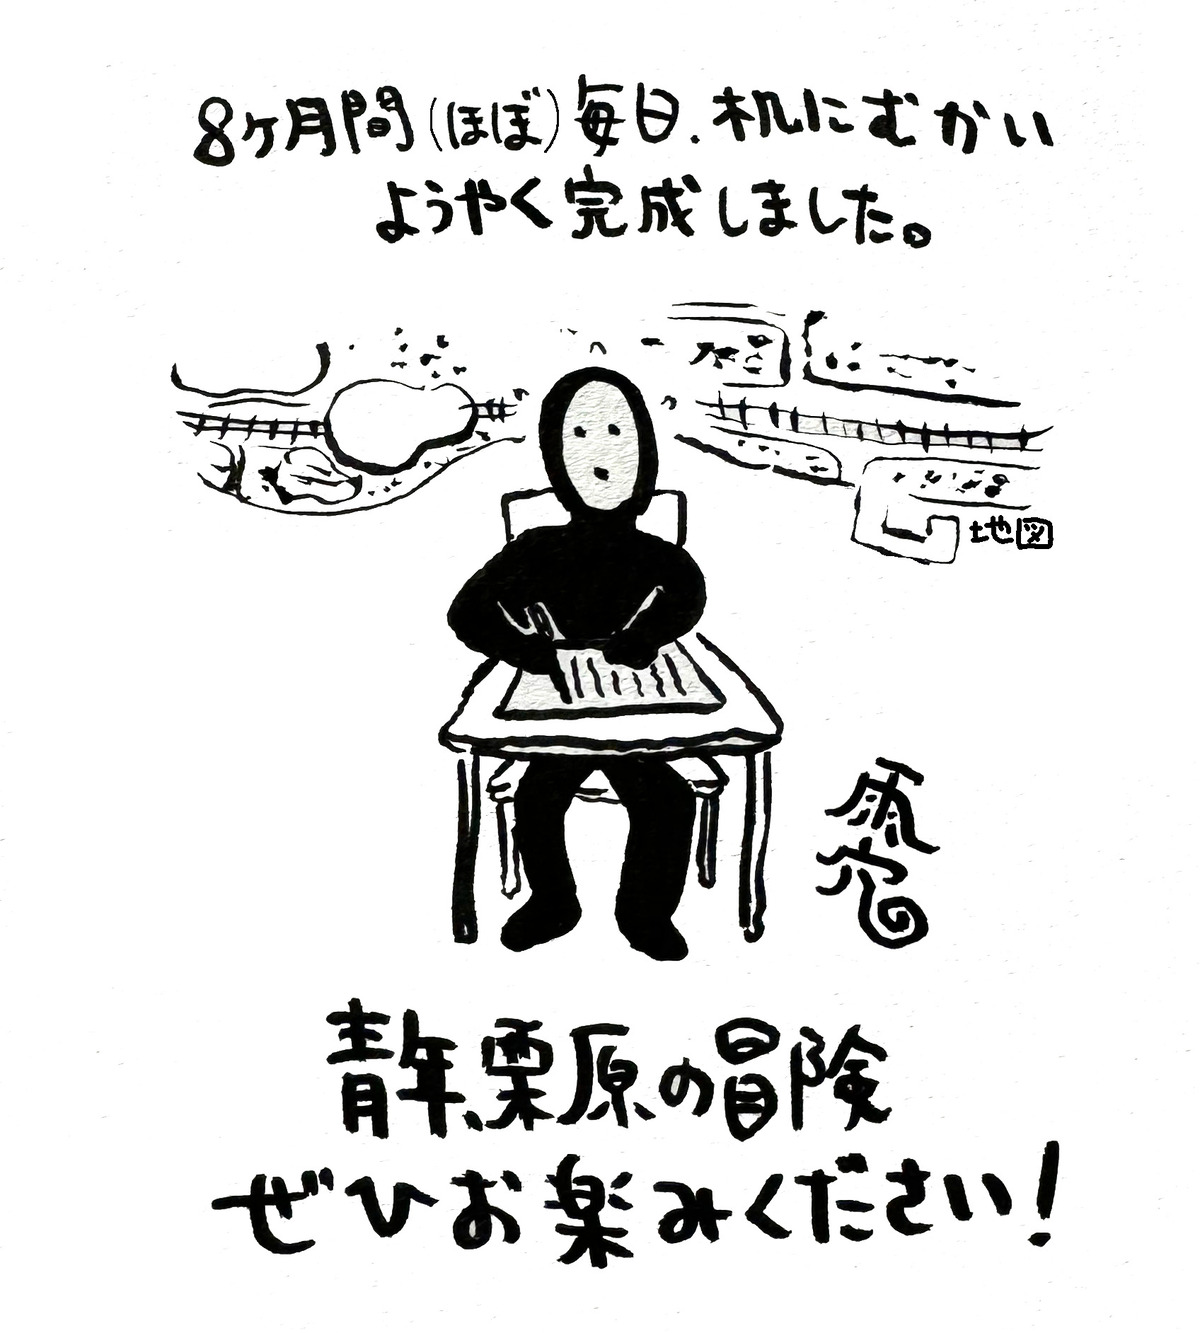 8ヶ月間(ほぼ)毎日、机にむかい
ようやく完成しました。
地図
雨穴
青年、栗原の冒険
ぜひお楽しみください!